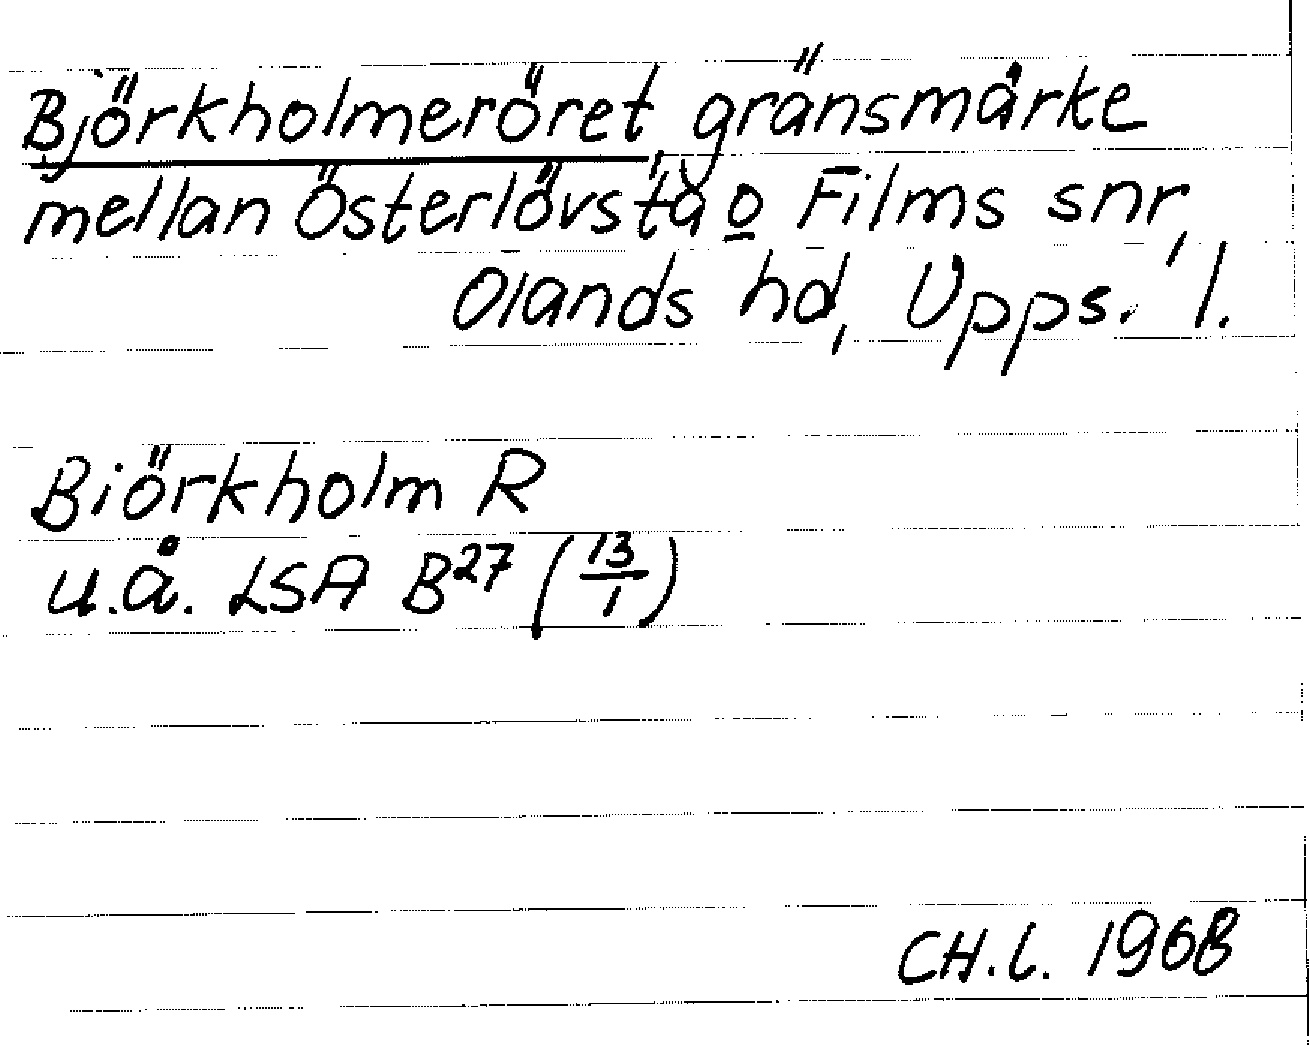 Björkholmeröret, gränsmärke
mellan Österlövsta o Films snr,
Olands hd, Upps. l.
Biörkholm R
u.å. LSA B²⁷ (13/1)
CH.L. 1968